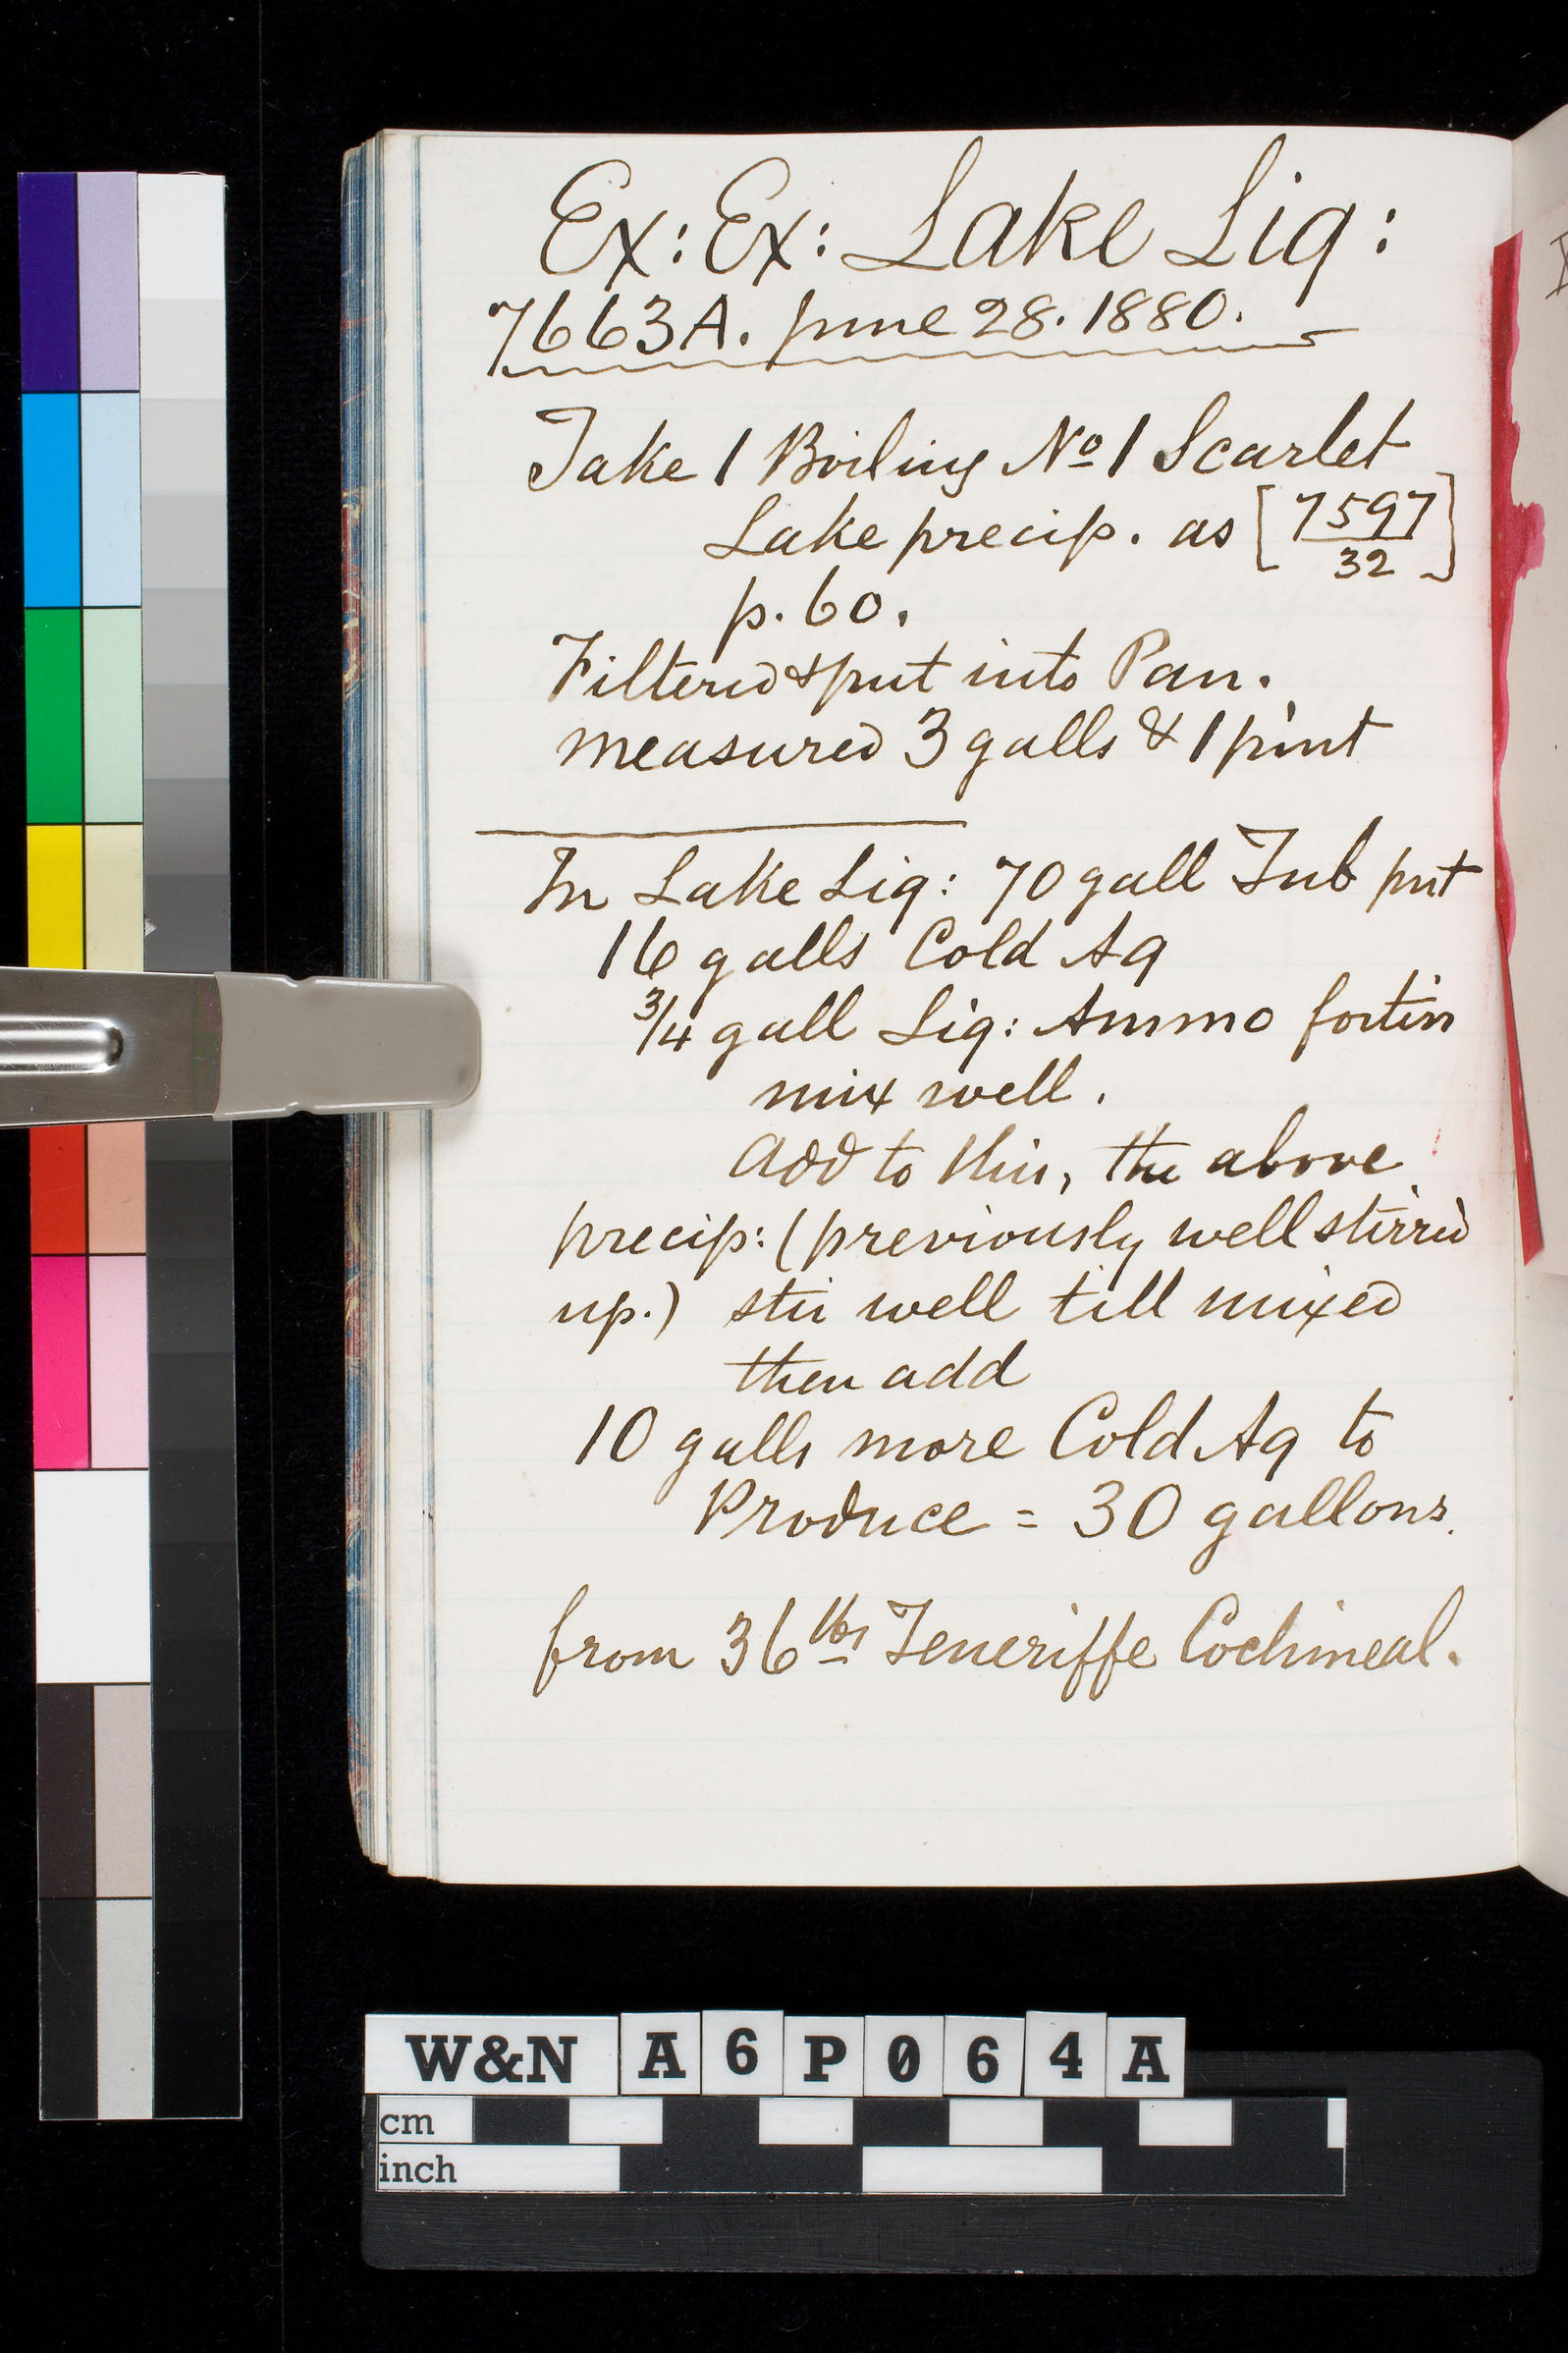 Ex: Ex: Lake Liq:
7663A. June 28. 1880.
Take 1 Boiling No 1 Scarlet
Lake precip. as [7597/32]
p. 60.
Filtered & put into Pan.
measured 3 galls & 1 pint
In Lake Liq: 70 gall Tub put
16 galls Cold Aq
3/4 gall Liq: Ammo fortiss
mix well.
Add to this, the above
precip: (previously well stirred
up.) stir well till mixed
then add
10 galls more Cold Aq to
Produce = 30 gallons.
from 36 lbs Teneriffe Cochineal.
W&N A6P064A
cm
inch